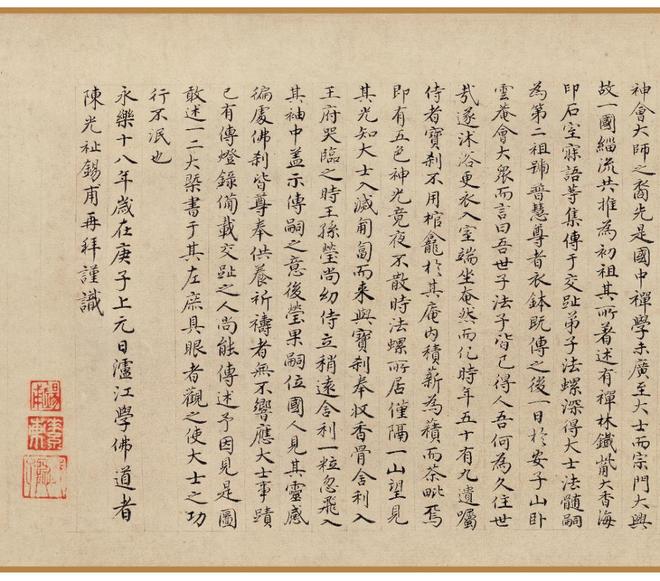 神會大師之裔先是國中禪學未廣至大士而宗門大興
故一國緇流共推為初祖其所著述有禪林鐵觜大香海
印石室寐語等集傳于交趾弟子法螺深得大士法髓嗣
為第二祖號普慧尊者衣鉢既傳之後一日於安子山臥
雲菴會大衆而言曰吾世子法子皆已得人吾何為久住世
哉遂沐浴更衣入室端坐奄然而化時年五十有九遺囑
侍者寶剎不用棺龕於其庵內積薪為積而荼毗焉
即有五色神光竟夜不散時法螺所居僅隔一山望見
其光知大士入滅匍匐而来與寶剎奉収香骨舍利入
王府哭臨之時王孫瑩尚幼侍立稍遠舍利一粒忽飛入
其袖中盖示傳嗣之意後瑩果嗣位國人見其靈感
徧處佛剎皆尊奉供養祈禱者無不響應大士事蹟
已有傳燈錄備載交趾之人尚能傳述予因見是圖
敢述一二大槩書于其左庶具眼者觀之使大士之功
行不泯也
永樂十八年歲在庚子上元日瀘江學佛道者
陳光祉錫甫再拜謹識